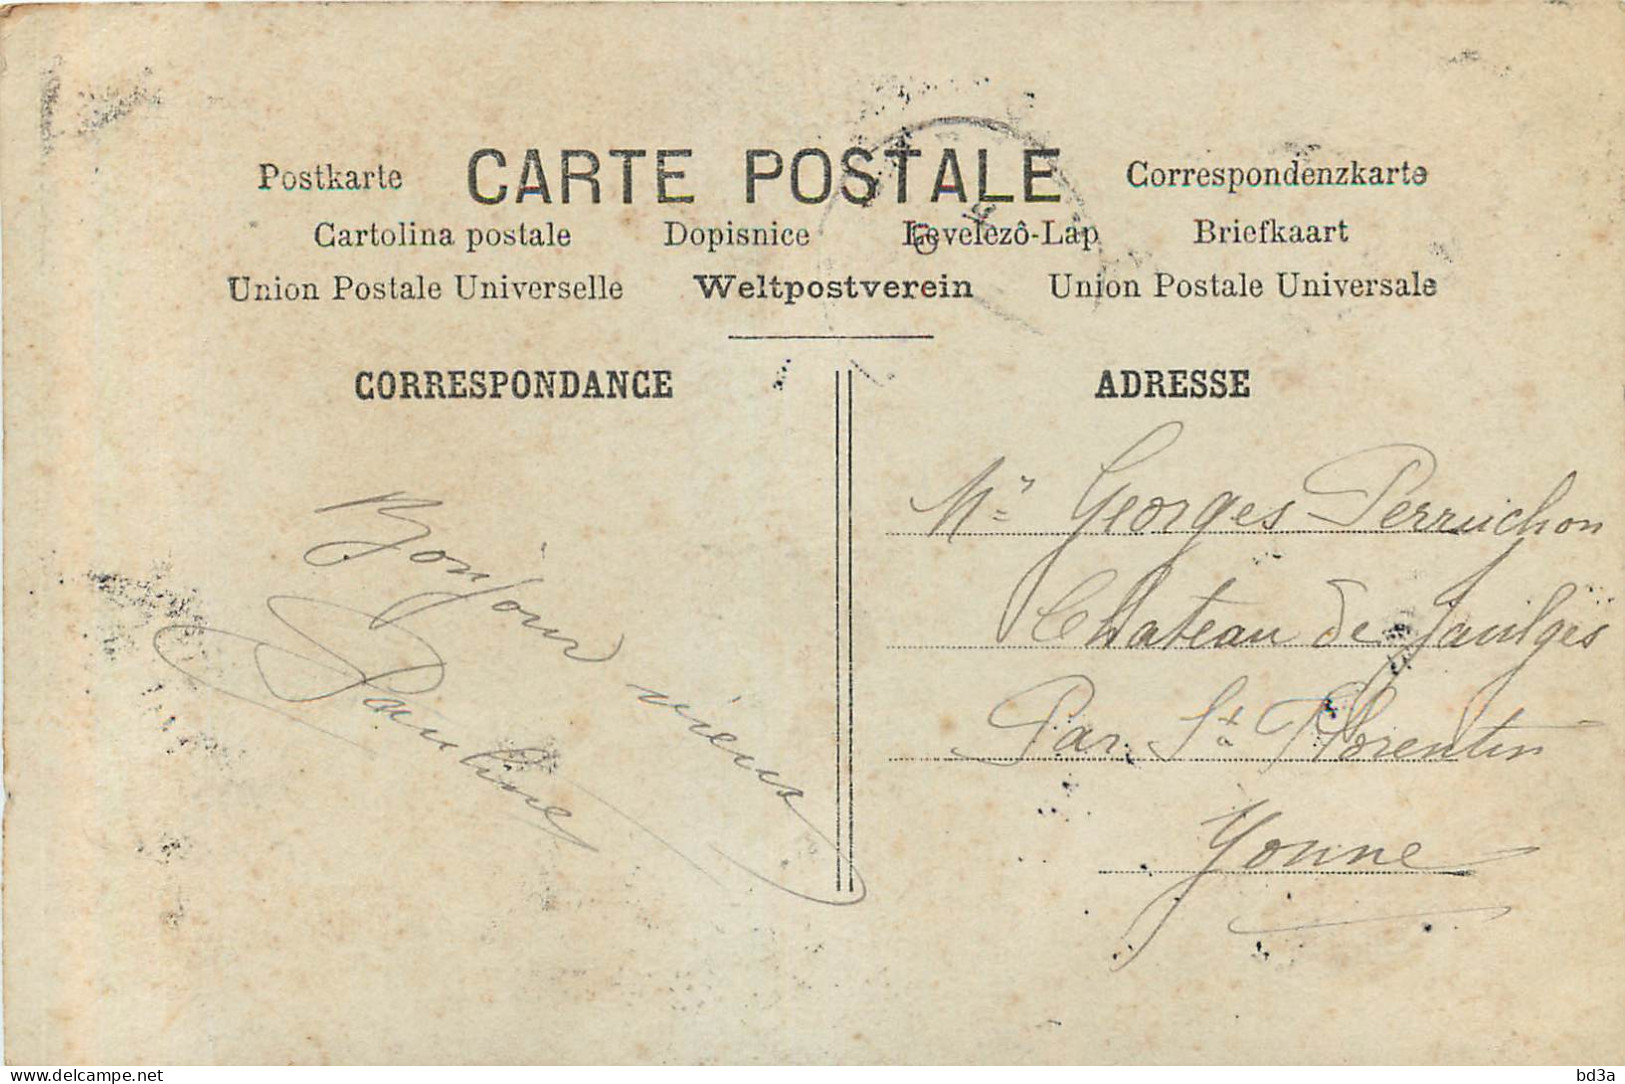 Postkarte CARTE POSTALE Correspondenzkarte
Cartolina postale Dopisnice Levelezô-Lap Briefkaart
Union Postale Universelle Weltpostverein Union Postale Universale
CORRESPONDANCE
Bonjour vieux
Pauline
ADRESSE
Mr Georges Perruchon
Chateau de Jaulges
Par St Florentin
Yonne
delcampe.net
bd3a